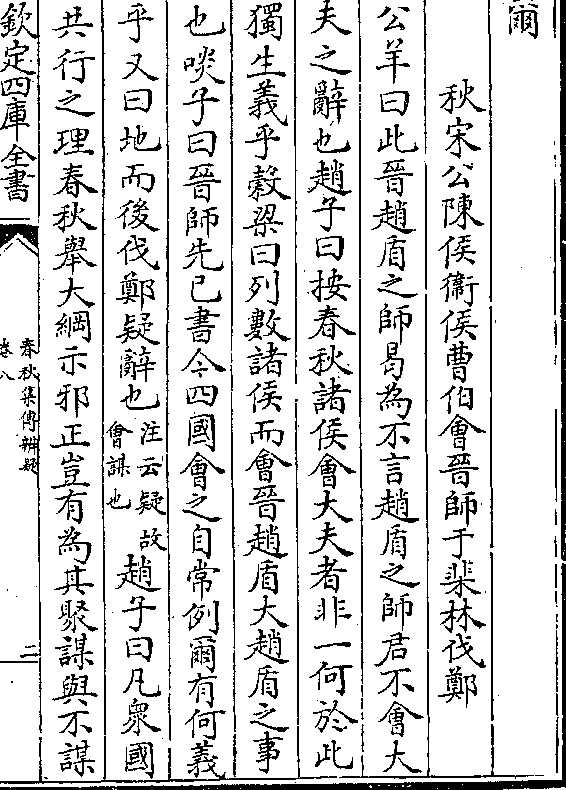 爾
秋宋公陳侯衞侯曹伯會晉師于棐林伐鄭
公羊曰此晉趙盾之師曷為不言趙盾之師君不會大
夫之辭也趙子曰按春秋諸侯會大夫者非一何於此
獨生義乎穀梁曰列數諸侯而會晉趙盾大趙盾之事
也啖子曰晉師先已書今四國會之自常例爾有何義
乎又曰地而後伐鄭疑辭也注云疑故會謀也趙子曰凡衆國
共行之理春秋舉大綱示邪正豈有為其聚謀與不謀
欽定四庫全書
春秋集傳辨疑
卷八
二